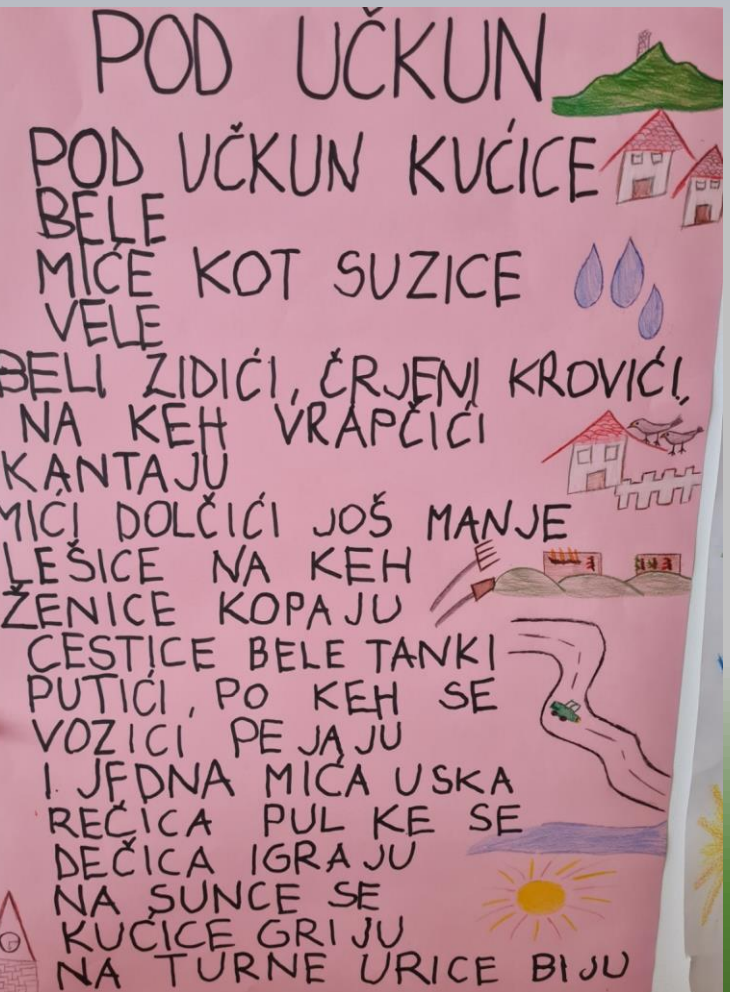 POD UČKUN
POD UČKUN KUĆICE
BELE
MIĆE KOT SUZICE
VELE
BELI ZIDIĆI, ČRJENI KROVIĆI,
NA KEH VRAPČIĆI
KANTAJU
MIĆI DOLČIĆI JOŠ MANJE
LEŠICE NA KEH
ŽENICE KOPAJU
CESTICE BELE TANKI
PUTIĆI, PO KEH SE
VOZICI PEJAJU
I JEDNA MIĆA USKA
REČICA PUL KE SE
DEČICA IGRAJU
NA SUNCE SE
KUĆICE GRIJU
NA TURNE URICE BIJU